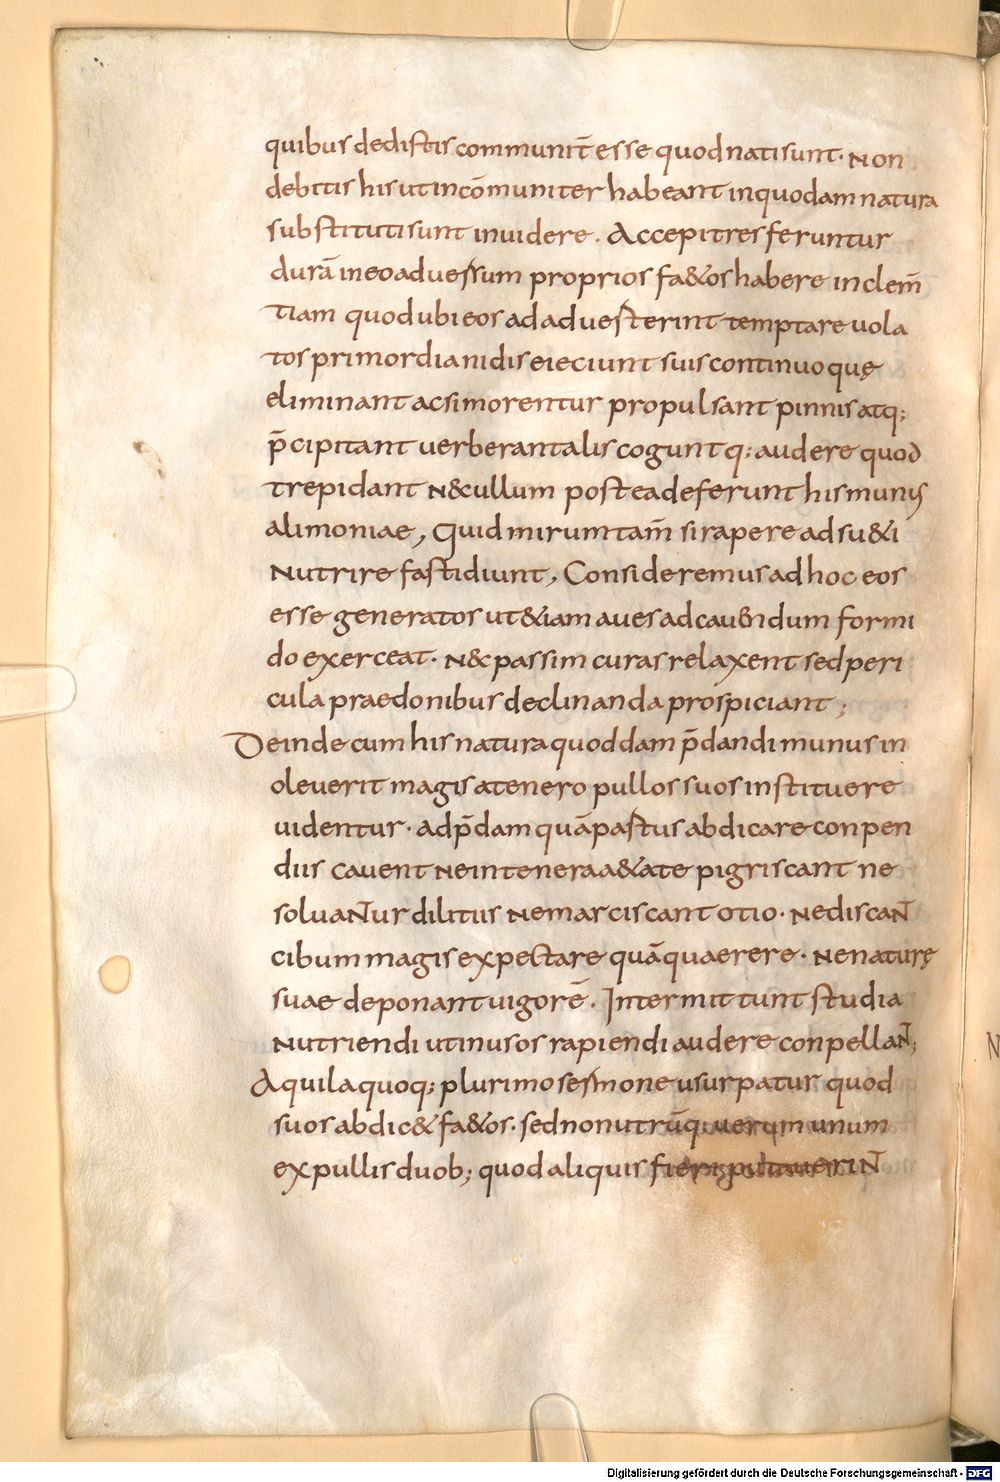 quibus dedistis communit̄ esse quod nati sunt. Non
debitis his ut incōmuniter habeant in quodam natura
substituti sunt inuidere. Accepitres feruntur
durā in eo aduessum proprios fa&os habere inclem̄
tiam quod ubi eos ad aduesterint temptare uola
tos primordia nidis eieciunt suis continuo quę
eliminant ac si morentur propulsant pinnis atq;
p̄cipitant uerberant alis coguntq; audere quod
trepidant N&cullum postea deferunt his munis
alimoniae, Quid mirum tam̄ si rapere adsu&i
Nutrire fastidiunt, Consideremus ad hoc eos
esse generatos ut &iam aues ad cauendum formi
do exerceat. N&c passim curas relaxent sed peri
cula praedonibus declinanda prospiciant;
Deinde cum his natura quoddam p̄dandi munus in
oleuerit magis a tenero pullos suos instituere
uidentur. ad p̄dam quā pastus abdicare conpen
diis cauent Ne in tenera a&ate pigriscant ne
soluaNtur dilitiis Ne marciscant otio. Nediscant
cibum magis expectare quā quaerere. Ne naturę
suae deponant uigorē. Intermittunt studia
Nutriendi ut in usos rapiendi audere conpellaNt;
Aquila quoq; plurimo sesmone usurpatur quod
suos abdic& fa&os. sed non utrūq; uerum unum
ex pullis duob; quod aliquis fieri putauerint